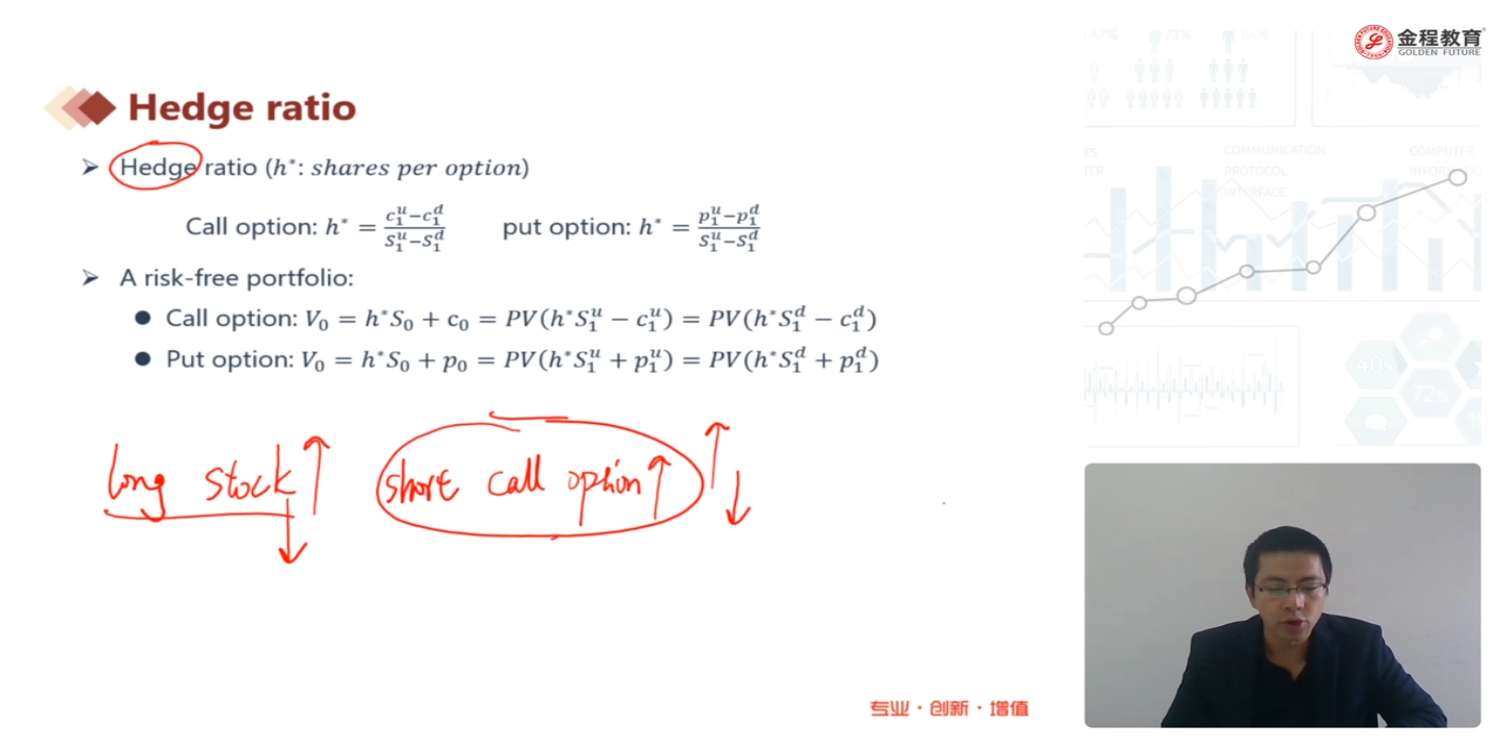 金程教育
GOLDEN FUTURE
Hedge ratio
➤ Hedge ratio (h*: shares per option)
Call option: h* = (c₁ᵘ−c₁ᵈ)/(S₁ᵘ−S₁ᵈ) put option: h* = (p₁ᵘ−p₁ᵈ)/(S₁ᵘ−S₁ᵈ)
➤ A risk-free portfolio:
● Call option: V₀ = h*S₀ + c₀ = PV(h*S₁ᵘ − c₁ᵘ) = PV(h*S₁ᵈ − c₁ᵈ)
● Put option: V₀ = h*S₀ + p₀ = PV(h*S₁ᵘ + p₁ᵘ) = PV(h*S₁ᵈ + p₁ᵈ)
long stock ↑ ↓ short call option ↑ ↑ ↓
COMMUNICATION
PROTOCOL
INTERFACE
COMPUTER
40%
72%
专业·创新·增值